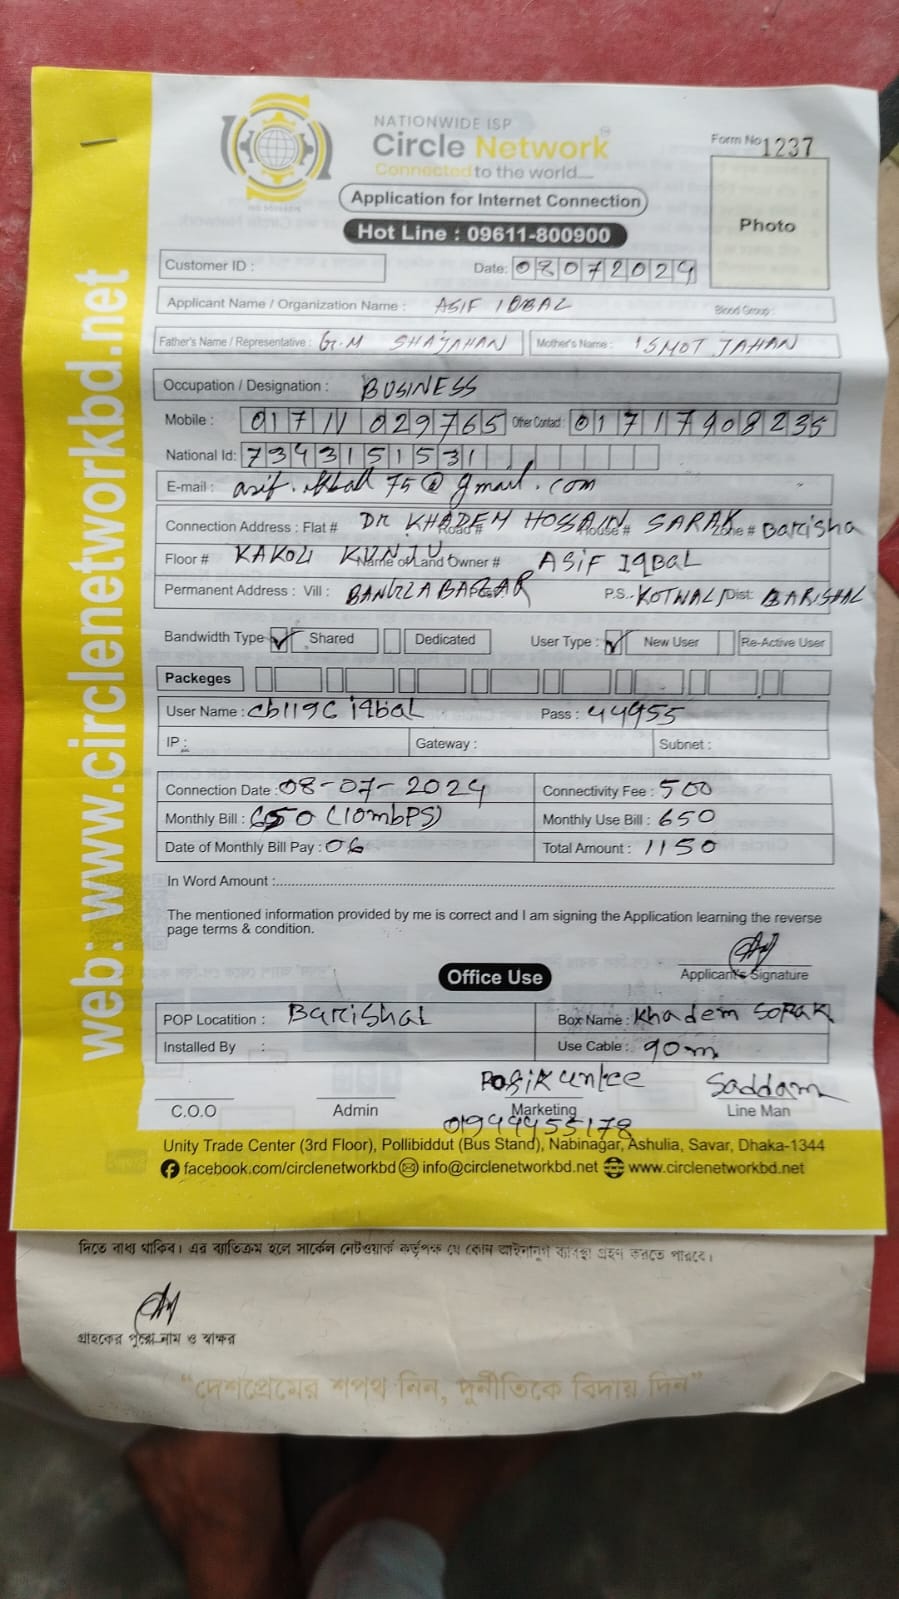 NATIONWIDE ISP
Circle Network
Connected to the world....
Form No 1237
Application for Internet Connection
Photo
Hot Line : 09611-800900
Customer ID :
Date: 08072024
Applicant Name / Organization Name : ASIF IQBAL Blood Group :
Father's Name / Representative : G.M SHAJAHAN Mother's Name : ISMOT JAHAN
Occupation / Designation : BUSINESS
Mobile : 01711029765 Other Contact : 01717908235
National Id: 7343151531
E-mail : 75@gmail.com
Connection Address : Flat # DR KHADEM HOSSAIN SARAK Road # House # Zone # Barisha
Floor # KAKOLI KUNJU Name of Land Owner # ASIF IQBAL
Permanent Address : Vill : BANGLA BAZAR P.S.. KOTWALI Dist: BARISHAL
Bandwidth Type ✓ Shared Dedicated User Type : ✓ New User Re-Active User
Packeges
User Name : cb119c iqbal Pass : 44955
IP : Gateway : Subnet :
Connection Date : 08-07-2024 Connectivity Fee : 500
Monthly Bill : 650 (10mbPS) Monthly Use Bill : 650
Date of Monthly Bill Pay : 06 Total Amount : 1150
In Word Amount :
The mentioned information provided by me is correct and I am signing the Application learning the reverse
page terms & condition.
Applicant's Signature
Office Use
POP Locatition : Barishal Box Name : Khadem SORAK
Installed By : Use Cable : 90m
Saddam
C.O.O Admin Marketing Line Man
01944955178
Unity Trade Center (3rd Floor), Pollibiddut (Bus Stand), Nabinagar, Ashulia, Savar, Dhaka-1344
facebook.com/circlenetworkbd info@circlenetworkbd.net www.circlenetworkbd.net
web: www.circlenetworkbd.net
দিতে বাধ্য থাকিব। এর ব্যতিক্রম হলে সার্কেল নেটওয়ার্ক কর্তৃপক্ষ যে কোন আইনানুগ ব্যবস্থা গ্রহণ করতে পারবে।
গ্রাহকের পুরো নাম ও স্বাক্ষর
“দেশপ্রেমের শপথ নিন, দুর্নীতিকে বিদায় দিন”